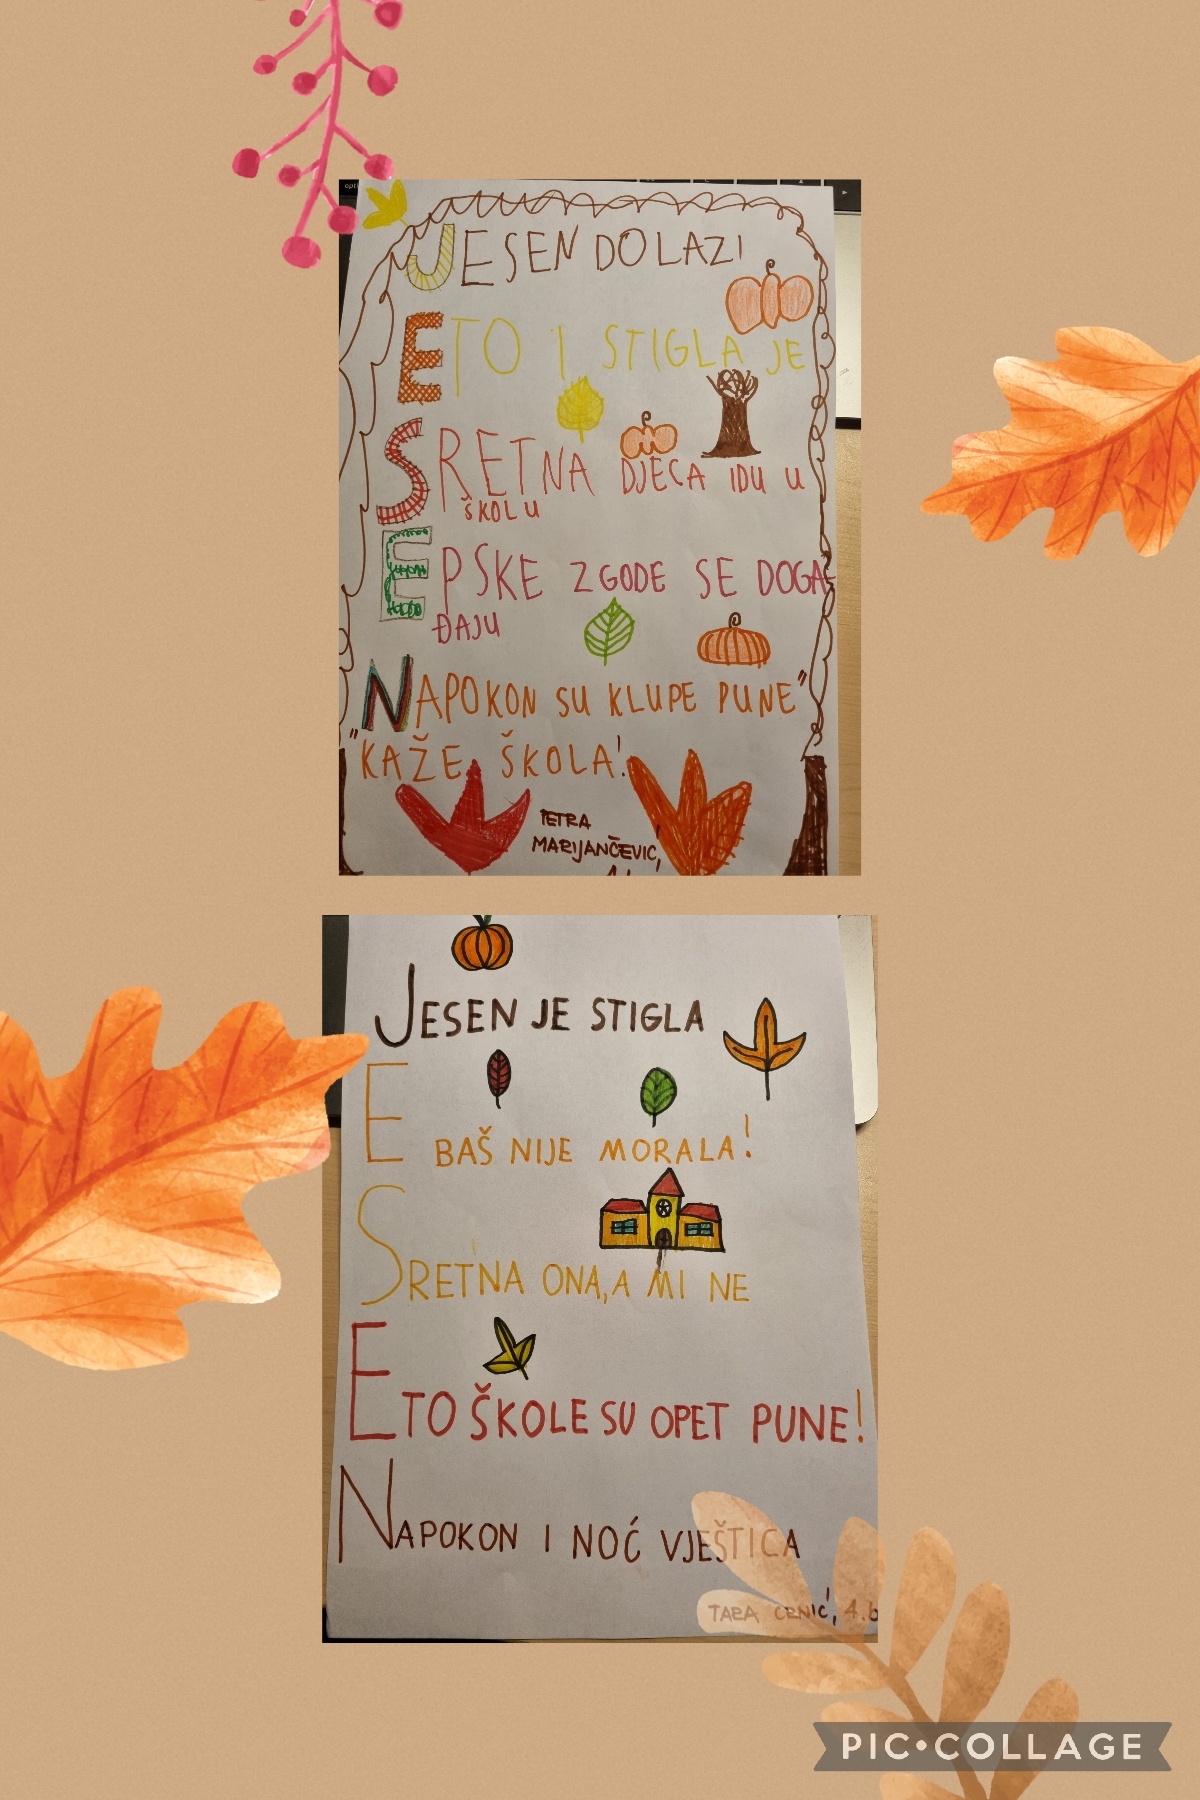 JESEN DOLAZI
ETO I STIGLA JE
SRETNA DJECA IDU U
ŠKOLU
EPSKE ZGODE SE DOGA-
ĐAJU
NAPOKON SU KLUPE PUNE"
"KAŽE ŠKOLA!
PETRA
MARIJANČEVIĆ,
JESEN JE STIGLA
E BAŠ NIJE MORALA!
SRETNA ONA, A MI NE
ETO ŠKOLE SU OPET PUNE!
NAPOKON I NOĆ VJEŠTICA
TARA CRNIĆ, 4.b
PIC•COLLAGE